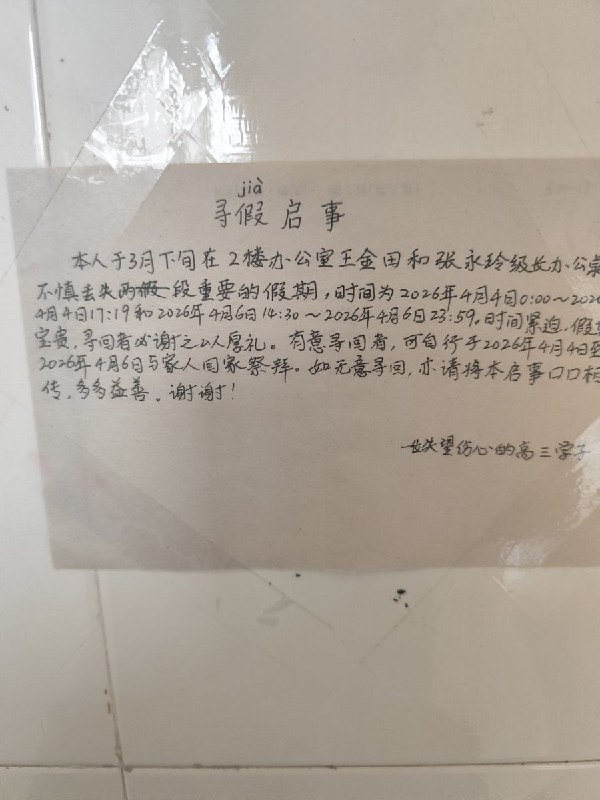 jià
寻假启事
本人于3月下旬在2楼办公室王金田和张永玲级长办公桌
不慎丢失两段重要的假期，时间为2026年4月4日0:00～2026
4月4日17:19和2026年4月6日14:30～2026年4月6日23:59。时间紧迫，假
宝贵，寻回者必谢之以厚礼。有意寻回者，可自行于2026年4月4日至
2026年4月6日与家人回家祭拜。如无意寻回，亦请将本启事口口相
传，多多益善，谢谢！
失望伤心的高三学子